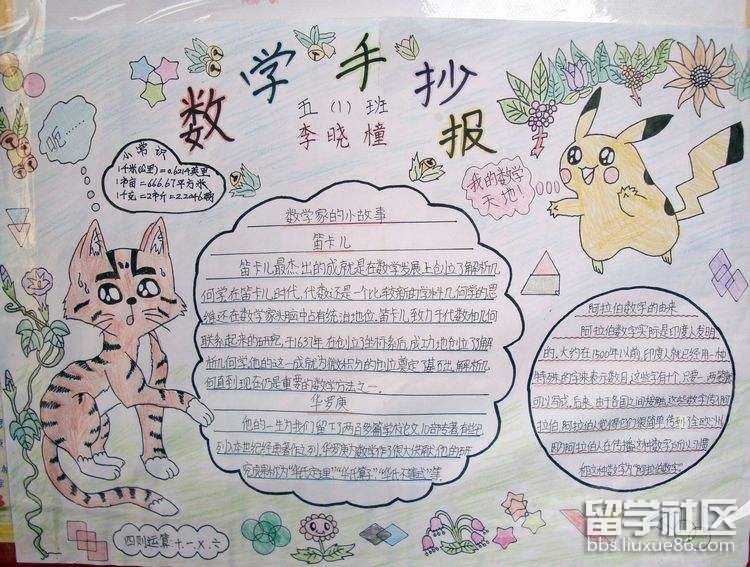 数学手抄报
五(1)班
李晓橦
呃……
小常识
1千米(公里)=0.6214英里
1市亩=666.67平方米
1千克=2市斤=2.2046磅
我的数学
天地!
数学家的小故事
笛卡儿
笛卡儿最杰出的成就是在数学发展上创立了解析几
何学在笛卡儿时代,代数还是一个比较新的学科,几何学的思
维还在数学家头脑中占有统治地位。笛卡儿致力于代数和几何
联系起来的研究,于1637年在创立了坐标系后,成功地创立了解
析几何学。他的这一成就为微积分的创立奠定了基础。解析几
何直到现在仍是重要的数学方法之一
华罗庚
他的一生为我们留下了两百多篇学术论文,
阿拉伯数字的由来
阿拉伯数字实际是印度人发明
的,大约在1500年以前,印度人就已经用一种
特殊的字来表示数目,这些字有十个,只要一两笔就
可以写成。后来,由于各国之间
四则运算:+、-、×、÷
留学社区
bbs.liuxue86.com